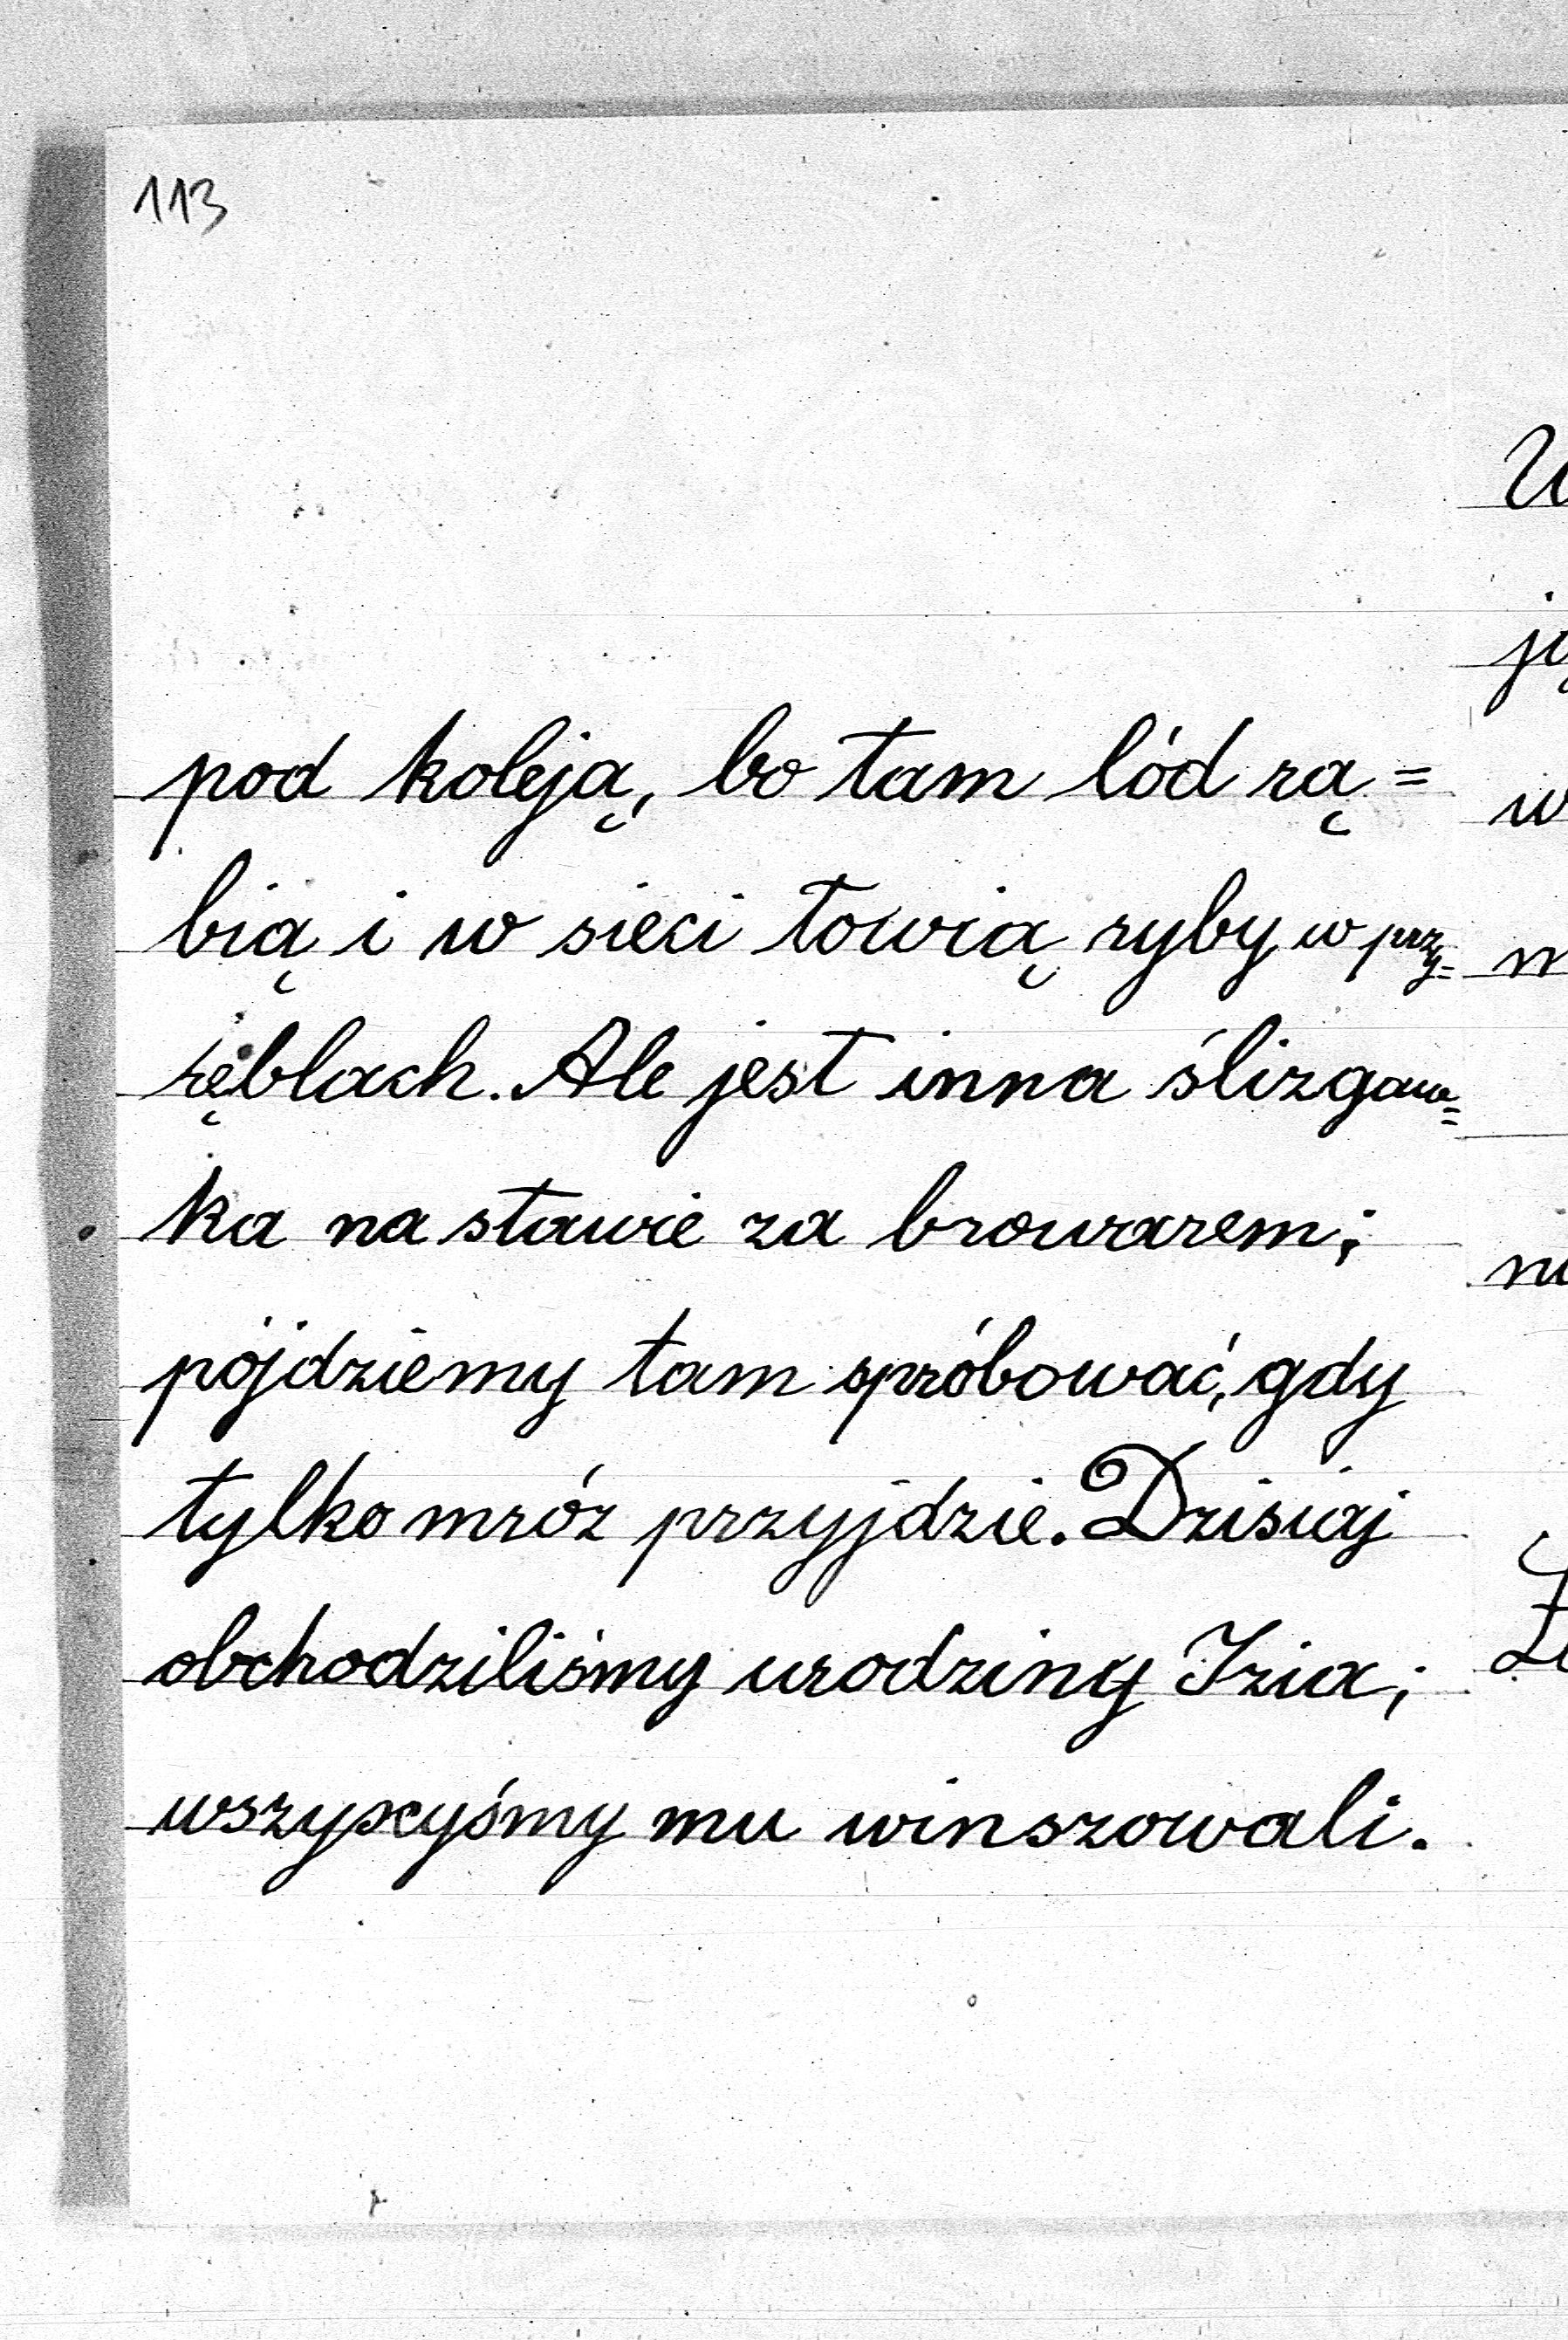 113
pod koleją, bo tam lód rą=
bią i w sieci łowią ryby w przy=
ręblach. Ale jest inna ślizgaw=
ka na stawie za browarem;
pójdziemy tam spróbować, gdy
tylko mróz przyjdzie. Dzisiaj
obchodziliśmy urodziny Izia;
wszyscyśmy mu winszowali.